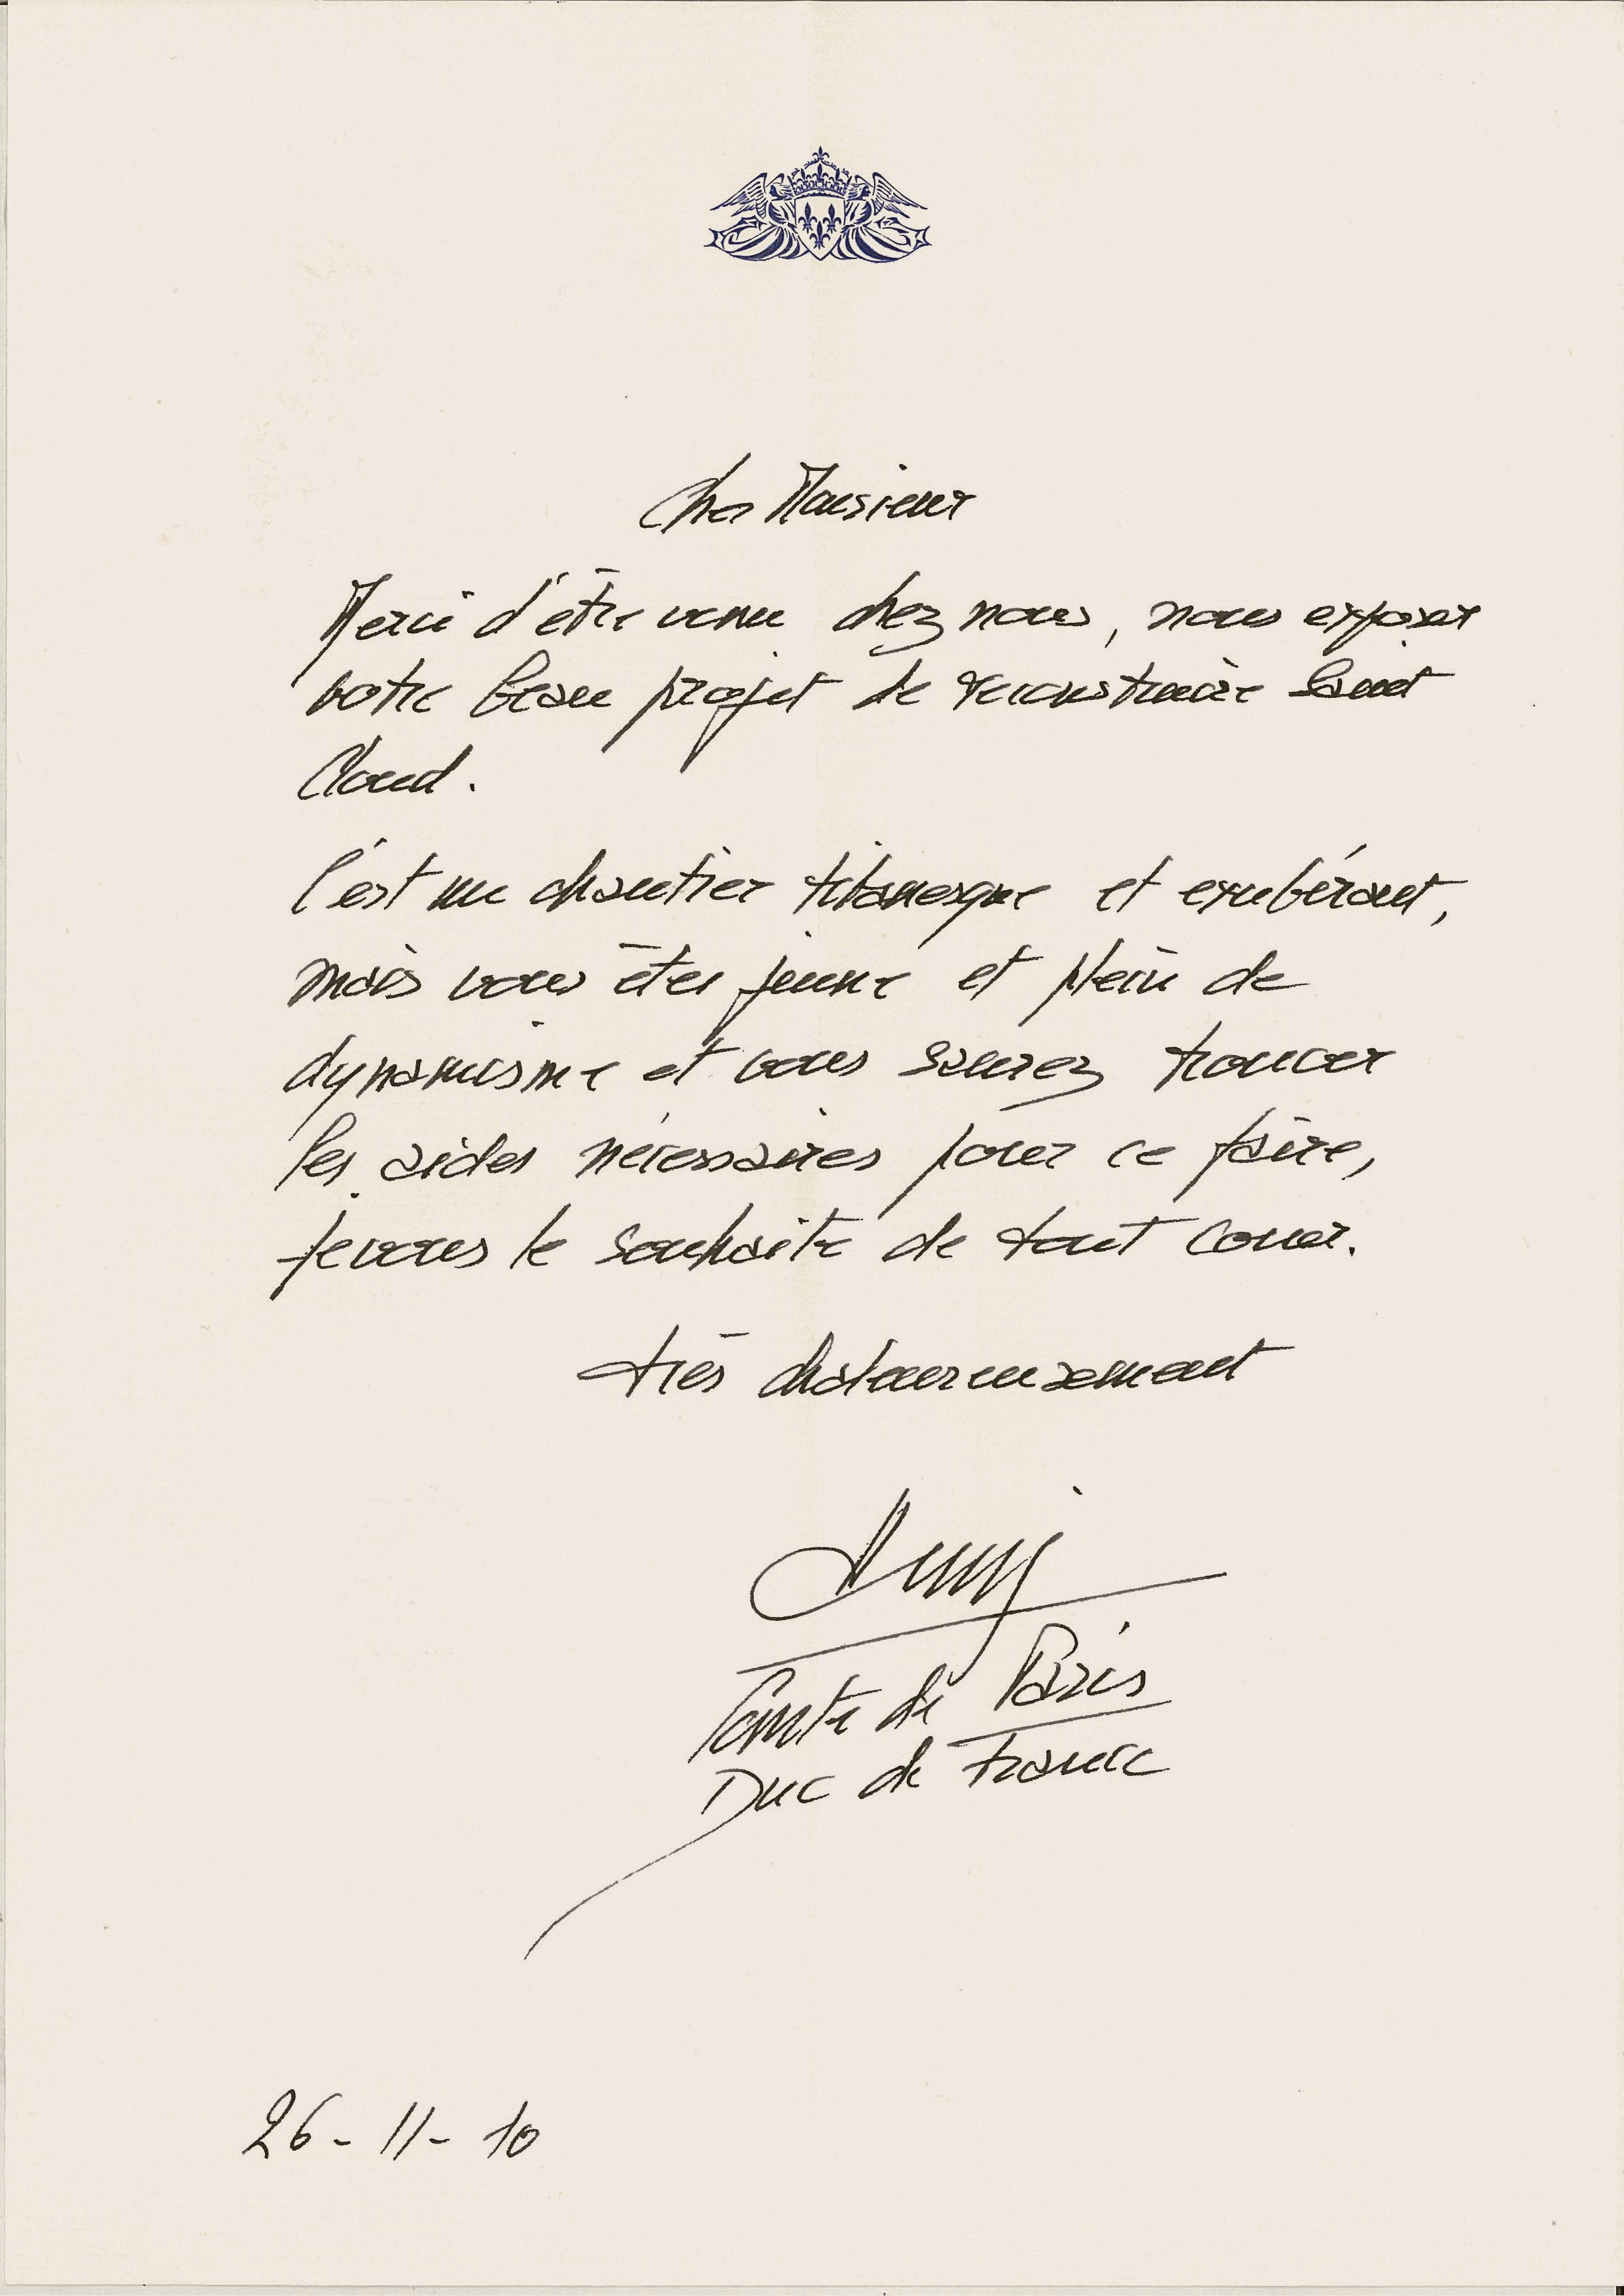 Cher Monsieur
Merci d'être venu chez nous, nous exposer
votre beau projet de reconstruire Saint
Cloud.
C'est un chantier titanesque et exubérant,
mais vous êtes jeune et plein de
dynamisme et vous saurez trouver
les aides nécessaires pour ce faire,
je vous le souhaite de tout coeur.
très chaleureusement
Henri
Comte de Paris
Duc de France
26-11-10